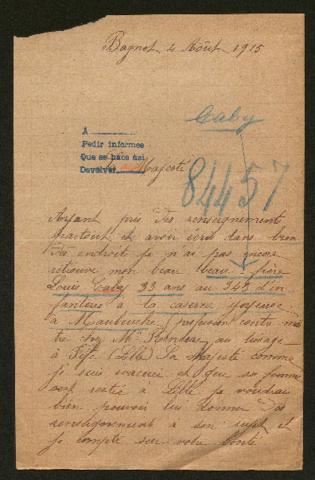 Bagnot 4 Août 1915
Caby
A
Pedir informes
Que se hace así
Devolver
Majesté
84457
Ayant pris des renseignement
partout et avoir écrit dans bien
des endroit je n'ai pas encore
retrouvé mon beau beau frère
Louis Caby 33 ans au 348 d'in
fanterie à la caserne Joyeuse
à Maubeuge, proposant contre maî
tre chez M. au tissage
à Fife (Lille) Sa Majesté comme
je suis évacué et que sa femme
est restée à Lille je voudrais
bien pouvoir lui donner des
renseignement à son sujet et
je compte sur votre bonté